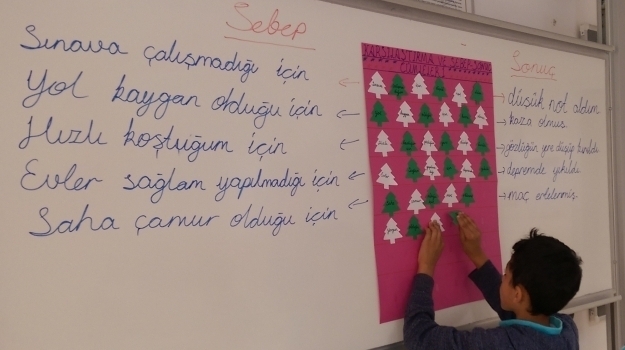 Sebep
Sınava çalışmadığı için
Yol kaygan olduğu için
Hızlı koştuğum için
Evler sağlam yapılmadığı için
Saha çamur olduğu için
KARŞILAŞTIRMA VE SEBEP SONUÇ
CÜMLELERİ
Sonuç
düşük not aldım
kaza olmuş.
gözlüğüm yere düşüp kırıldı.
depremde yıkıldı.
maç ertelenmiş.